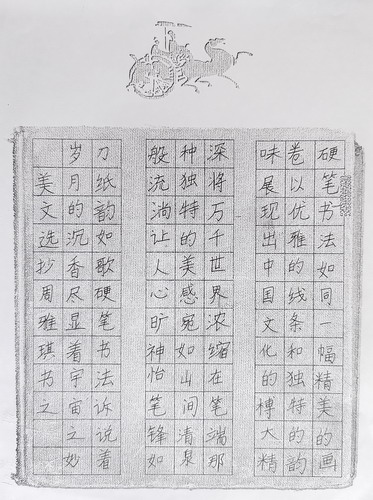 硬笔书法如同一幅精美的画
卷以优雅的线条和独特的韵
味展现出中国文化的博大精
深将万千世界浓缩在笔端那
种独特的美感宛如山间清泉
般流淌让人心旷神怡笔锋如
刀纸韵如歌硬笔书法诉说着
岁月的沉香尽显着宇宙之妙
美文选抄周雅琪书之